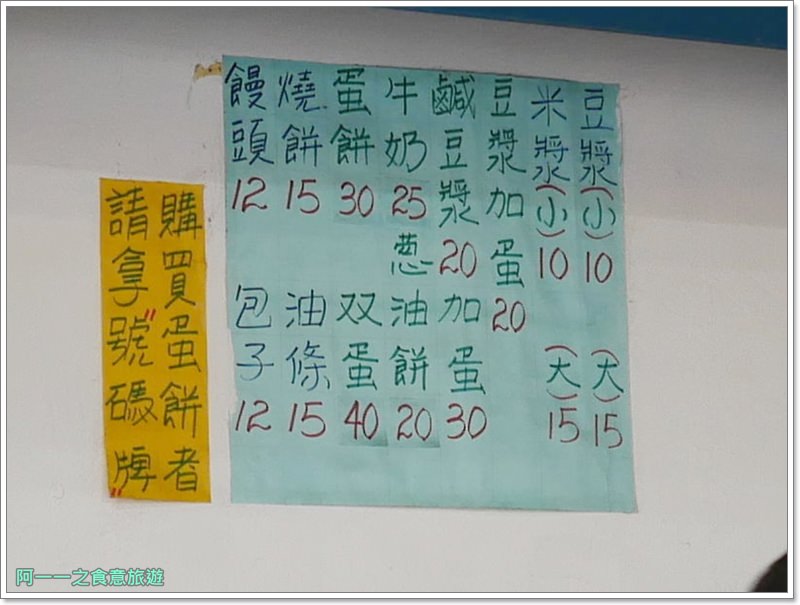 豆漿(小)10
(大)15
米漿(小)10
(大)15
豆漿加蛋20
鹹豆漿20
加蛋30
牛奶25
蔥油餅20
蛋餅30
双蛋40
燒餅15
油條15
饅頭12
包子12
購買蛋餅者
請拿"號碼牌"
阿一一之食意旅遊